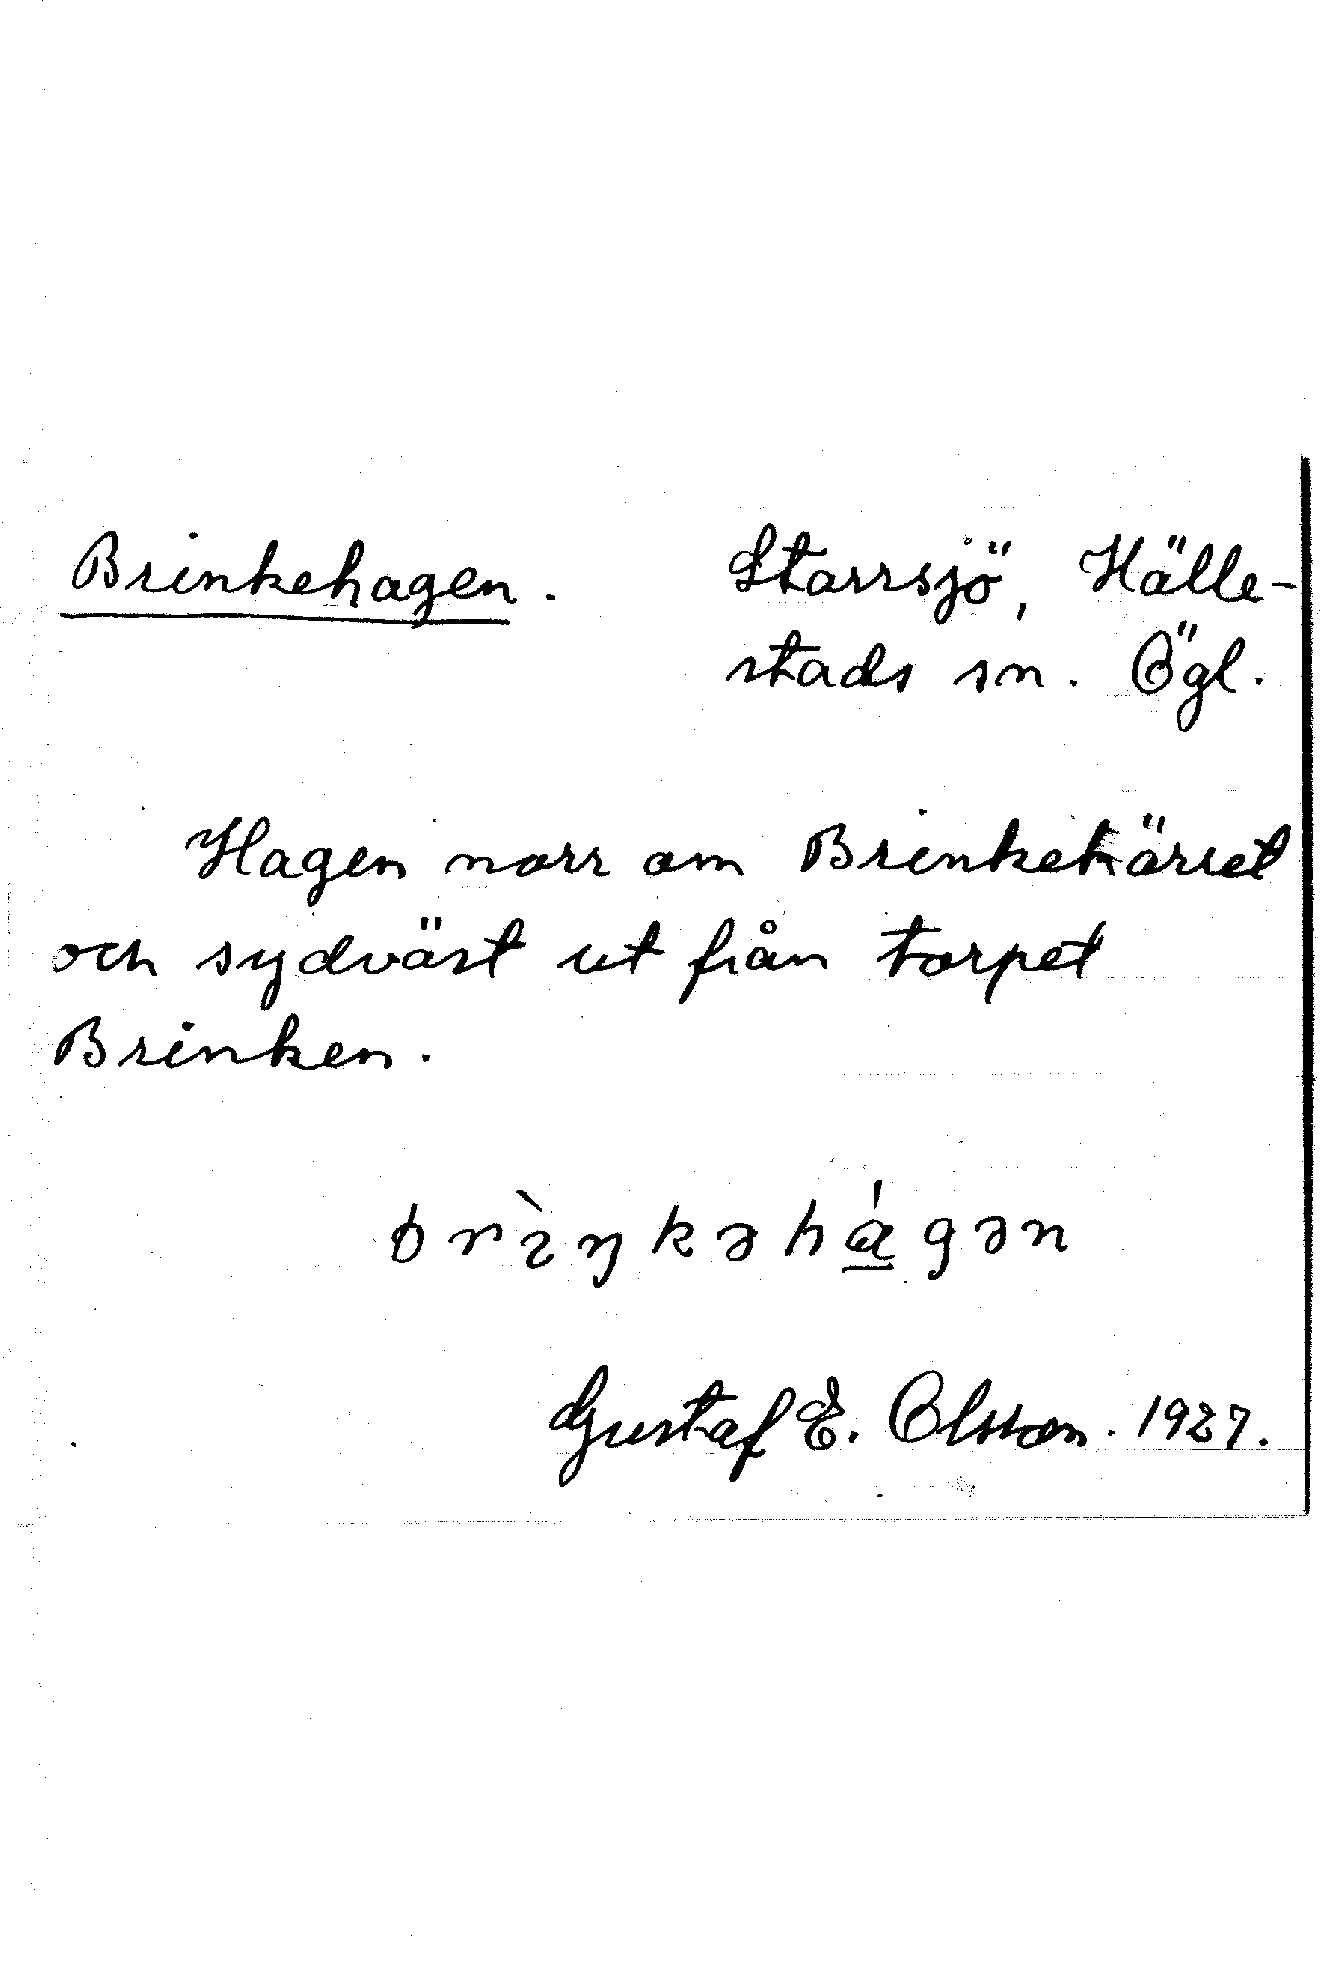 Brinkehagen. Starrsjö, Hälle-
stads sn. Ögl.
Hagen norr om Brinkekärret
och sydväst ut från torpet
Brinken.
brìŋkəhágən
Gustaf E. Olsson. 1927.